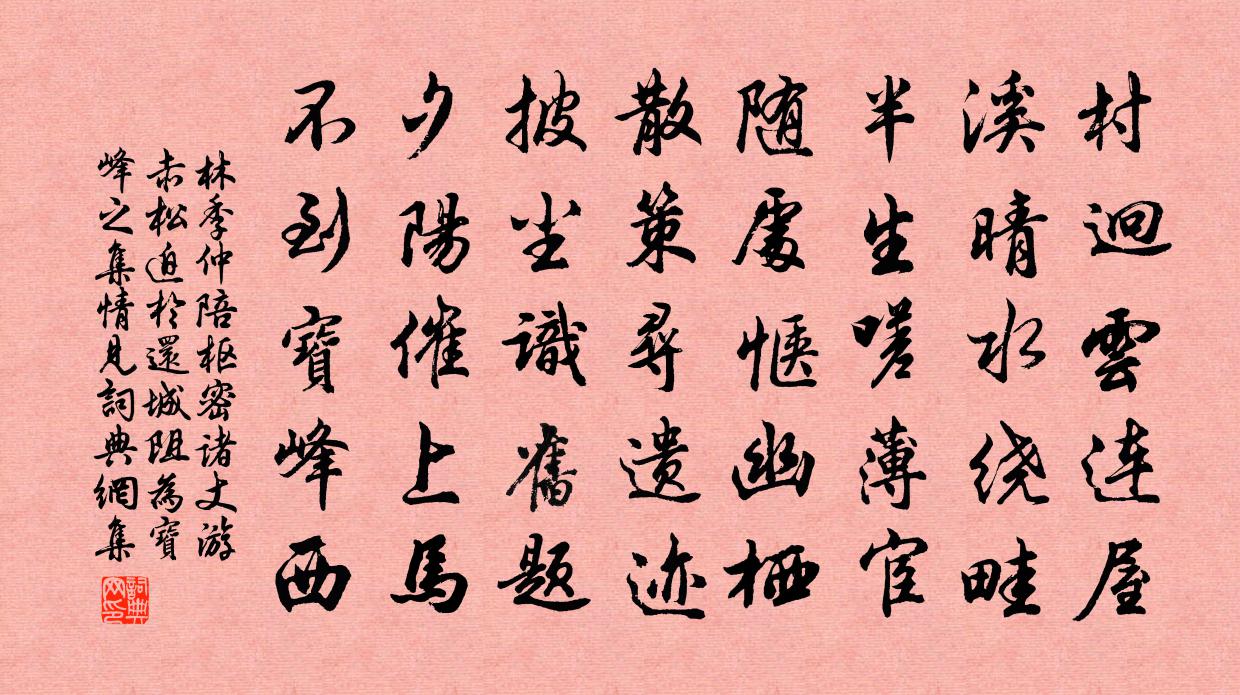 村迥雲连屋
溪晴水绕畦
半生嗟薄宦
随處惬幽栖
散策尋遗迹
披尘識舊题
夕陽催上馬
不到寶峰西
林季仲陪枢密诸丈游
赤松迫於還城阻為寶
峰之集情見詞典網集
詞典網印